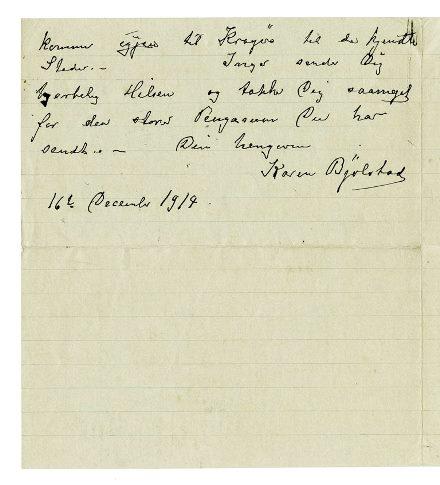 kommer igjen til Kragerø til de kjendte
Steder. — Inger sender Dig
hjertelig Hilsen og takker Dig saameget
for den store Pengesum Du har
sendt. — Din hengivne
Karen Bjölstad
16de December 1914.